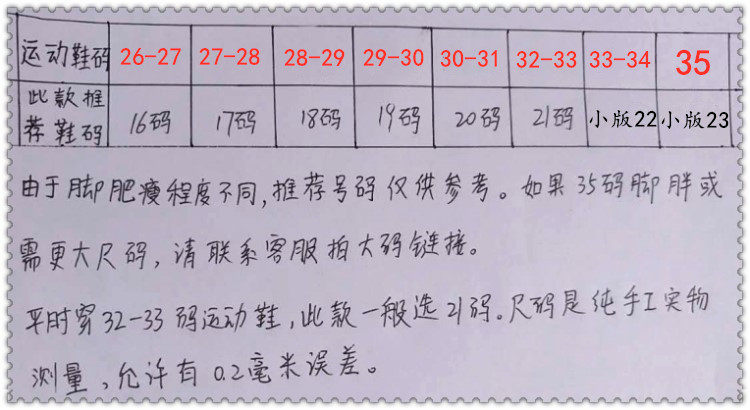 运动鞋码 26-27 27-28 28-29 29-30 30-31 32-33 33-34 35
此款推
荐鞋码 16码 17码 18码 19码 20码 21码 小版22 小版23
由于脚肥瘦程度不同,推荐号码仅供参考。如果35码脚胖或
需更大尺码,请联系客服拍大码链接。
平时穿32-33码运动鞋,此款一般选21码。尺码是纯手工实物
测量,允许有0.2毫米误差。